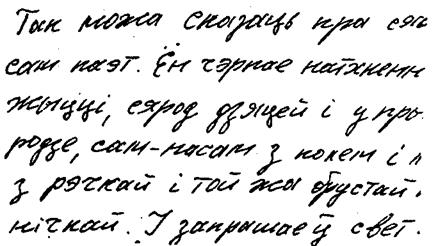 Так можа сказаць пра сяб
сам паэт. Ён чэрпае натхненн
жыцці, сярод дзяцей і у пры
родзе, сам-насам з полем і л
з рэчкай і той жа
нічкай. І запрашае ў свет